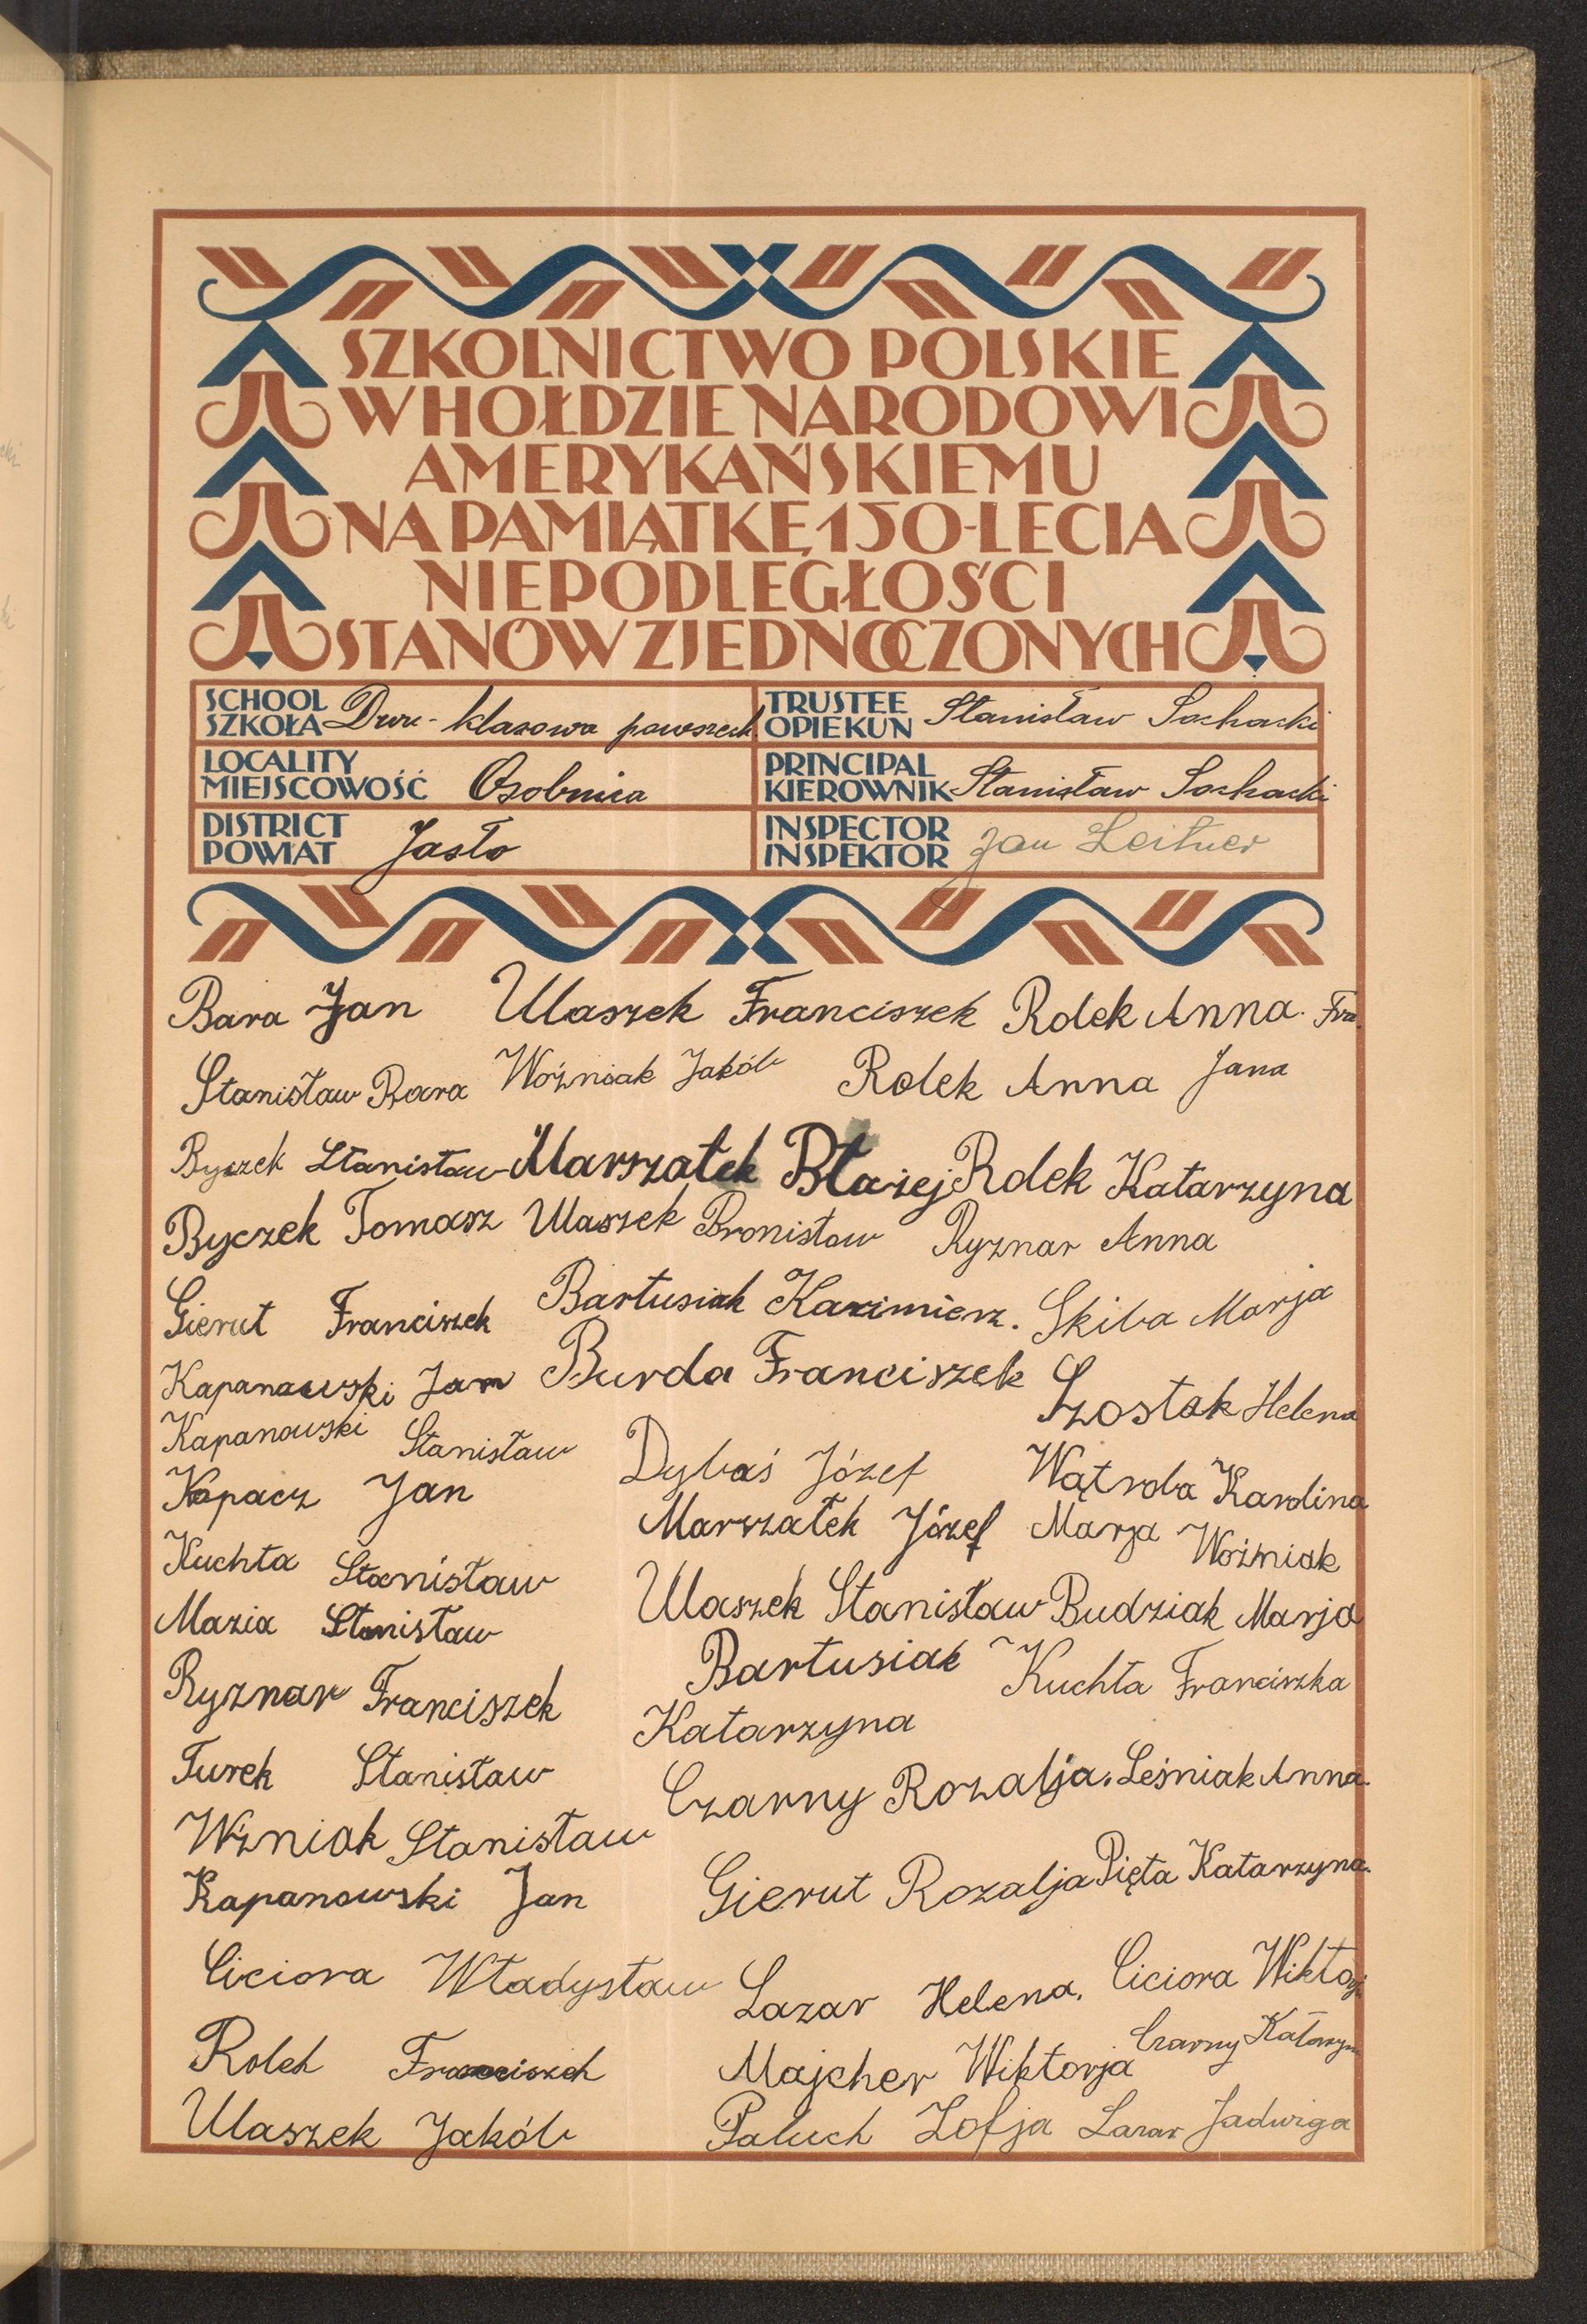 SZKOLNICTWO POLSKIE
W HOŁDZIE NARODOWI
AMERYKAŃSKIEMU
NA PAMIĄTKĘ 150-LECIA
NIEPODLEGŁOŚCI
STANÓW ZJEDNOCZONYCH
SCHOOL
SZKOŁA Dwu-klasowa powszech.
TRUSTEE
OPIEKUN Stanisław Sochacki
LOCALITY
MIEJSCOWOŚĆ Osobnica
PRINCIPAL
KIEROWNIK Stanisław Sochacki
DISTRICT
POWIAT Jasło
INSPECTOR
INSPEKTOR Jan Leitner
Bara Jan
Stanisław Bara
Byczek Stanisław
Byczek Tomasz
Gierut Franciszek
Kapanowski Jan
Kapanowski Stanisław
Kopacz Jan
Kuchta Stanisław
Mazia Stanisław
Ryznar Franciszek
Turek Stanisław
Wźniak Stanisław
Kapanowski Jan
Ciciora Władysław
Rolek Franciszek
Ulaszek Jakób
Ulaszek Franciszek
Woźniak Jakób
Marszałek Błażej
Ulaszek Bronisław
Bartusiak Kazimierz.
Burda Franciszek
Dybaś Józef
Marszałek Józef
Ulaszek Stanisław
Bartusiak
Katarzyna
Czarny Rozalja.
Gierut Rozalja
Lazar Helena.
Majcher Wiktorja
Paluch Zofja
Rolek Anna. Fra.
Rolek Anna Jana
Rolek Katarzyna
Ryznar Anna
Skiba Marja
Szostak Helena
Wątroba Karolina
Marja Woźniak
Budziak Marja
Kuchta Franciszka
Leśniak Anna.
Pięta Katarzyna.
Ciciora Wiktorj
Czarny Katarzyn
Lazar Jadwiga